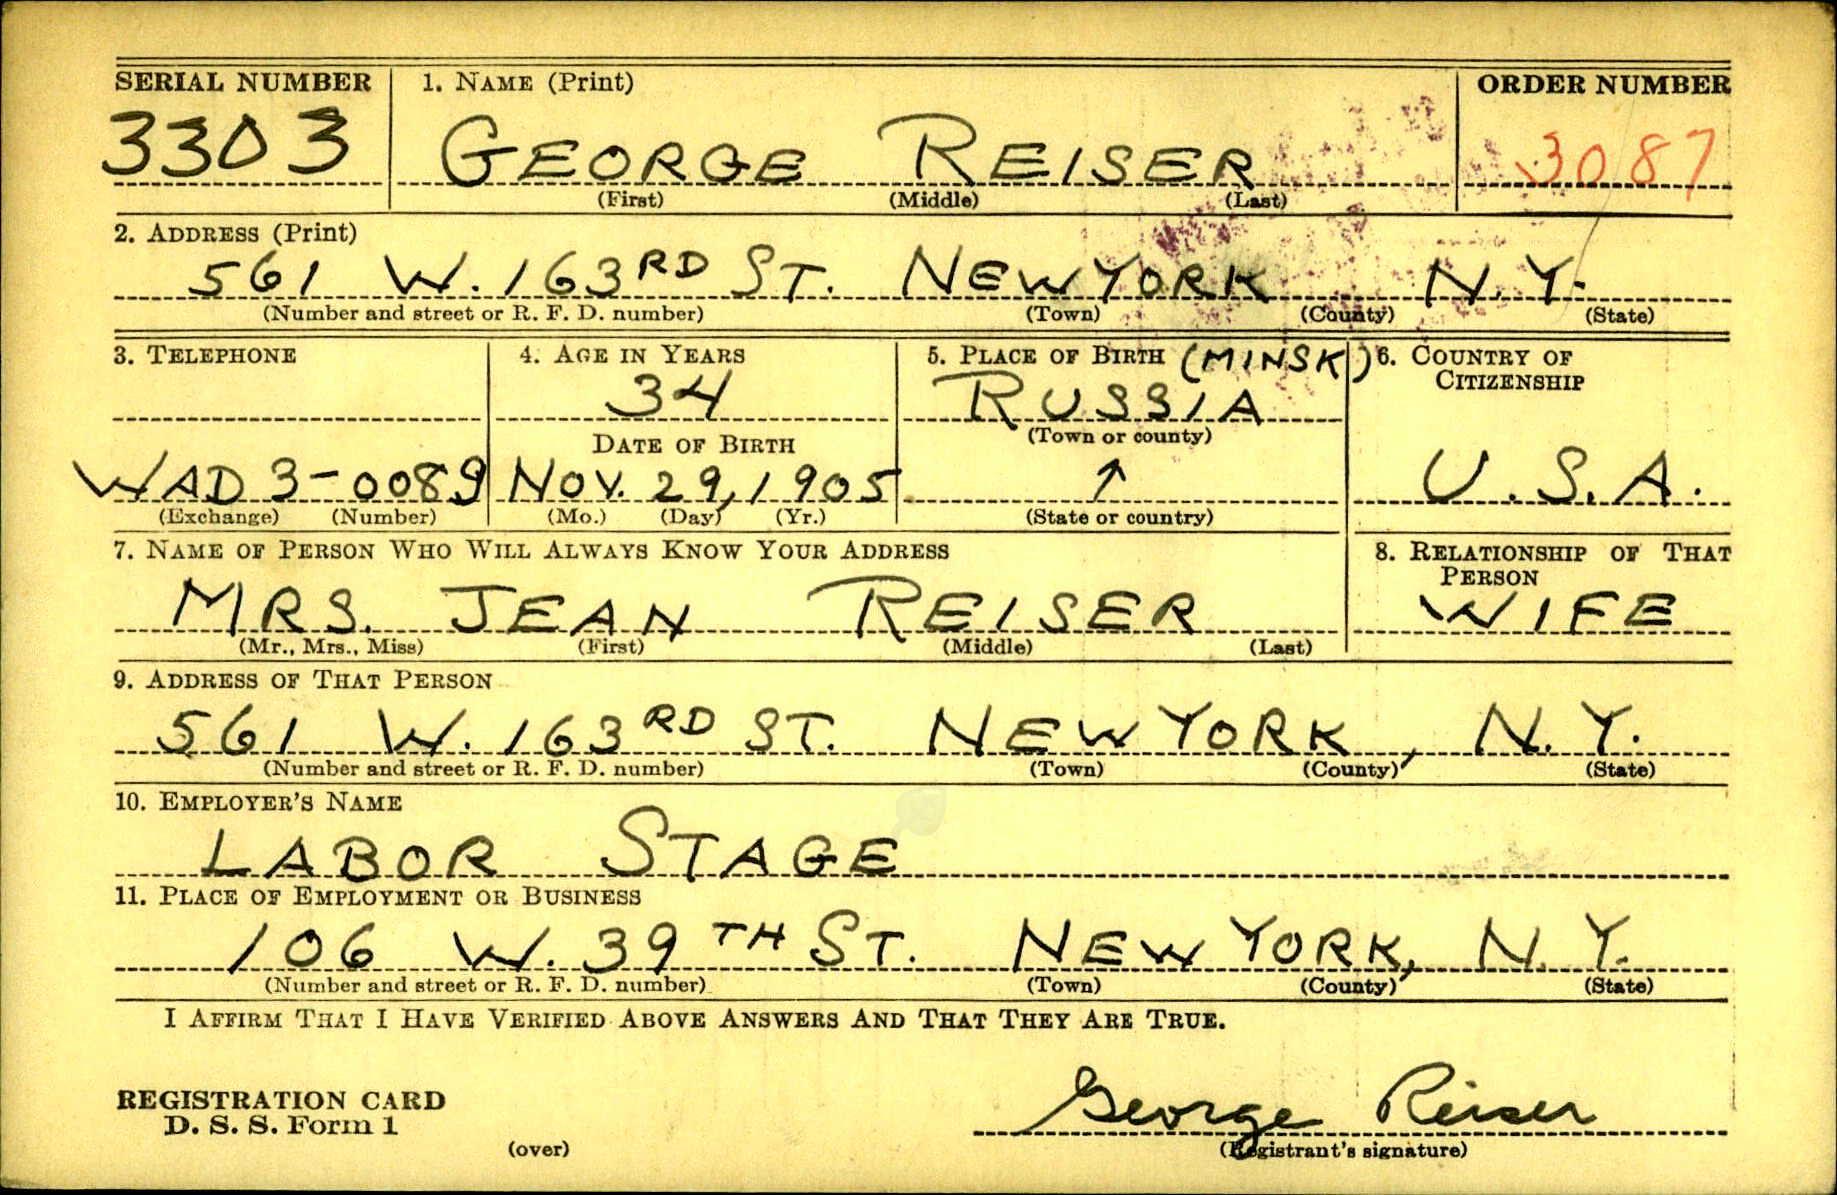 SERIAL NUMBER 1. NAME (Print) ORDER NUMBER
3303 GEORGE REISER 3087
(First) (Middle) (Last)
2. ADDRESS (Print)
561 W. 163RD ST. NEW YORK N.Y.
(Number and street or R. F. D. number) (Town) (County) (State)
3. TELEPHONE 4. AGE IN YEARS 5. PLACE OF BIRTH (MINSK) 6. COUNTRY OF
CITIZENSHIP
34 RUSSIA
DATE OF BIRTH (Town or county)
WAD 3-0089 NOV. 29, 1905 ↑ U.S.A.
(Exchange) (Number) (Mo.) (Day) (Yr.) (State or country)
7. NAME OF PERSON WHO WILL ALWAYS KNOW YOUR ADDRESS 8. RELATIONSHIP OF THAT
PERSON
MRS. JEAN REISER WIFE
(Mr., Mrs., Miss) (First) (Middle) (Last)
9. ADDRESS OF THAT PERSON
561 W. 163RD ST. NEW YORK, N.Y.
(Number and street or R. F. D. number) (Town) (County) (State)
10. EMPLOYER'S NAME
LABOR STAGE
11. PLACE OF EMPLOYMENT OR BUSINESS
106 W. 39TH ST. NEW YORK, N.Y.
(Number and street or R. F. D. number) (Town) (County) (State)
I AFFIRM THAT I HAVE VERIFIED ABOVE ANSWERS AND THAT THEY ARE TRUE.
REGISTRATION CARD George Reiser
D. S. S. Form 1
(over) (Registrant's signature)